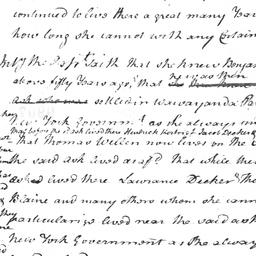 continued to live there a great many Year
how long she cannot with any Certain
the Dept saith that she knew Benja
above fifty Years ago, that he was then
settled in Wawayanda
New York Governmt as the always un
that before the sd Ask lived there Hendrick Jacob Decker &
That Thomas Welsen now lives on the
the said Ask lived as afsd That while the
Ask lived there Lawrance Decker, The
Kraine and many others whom she cann
particularize lived near the said ask
New York Government as she alway